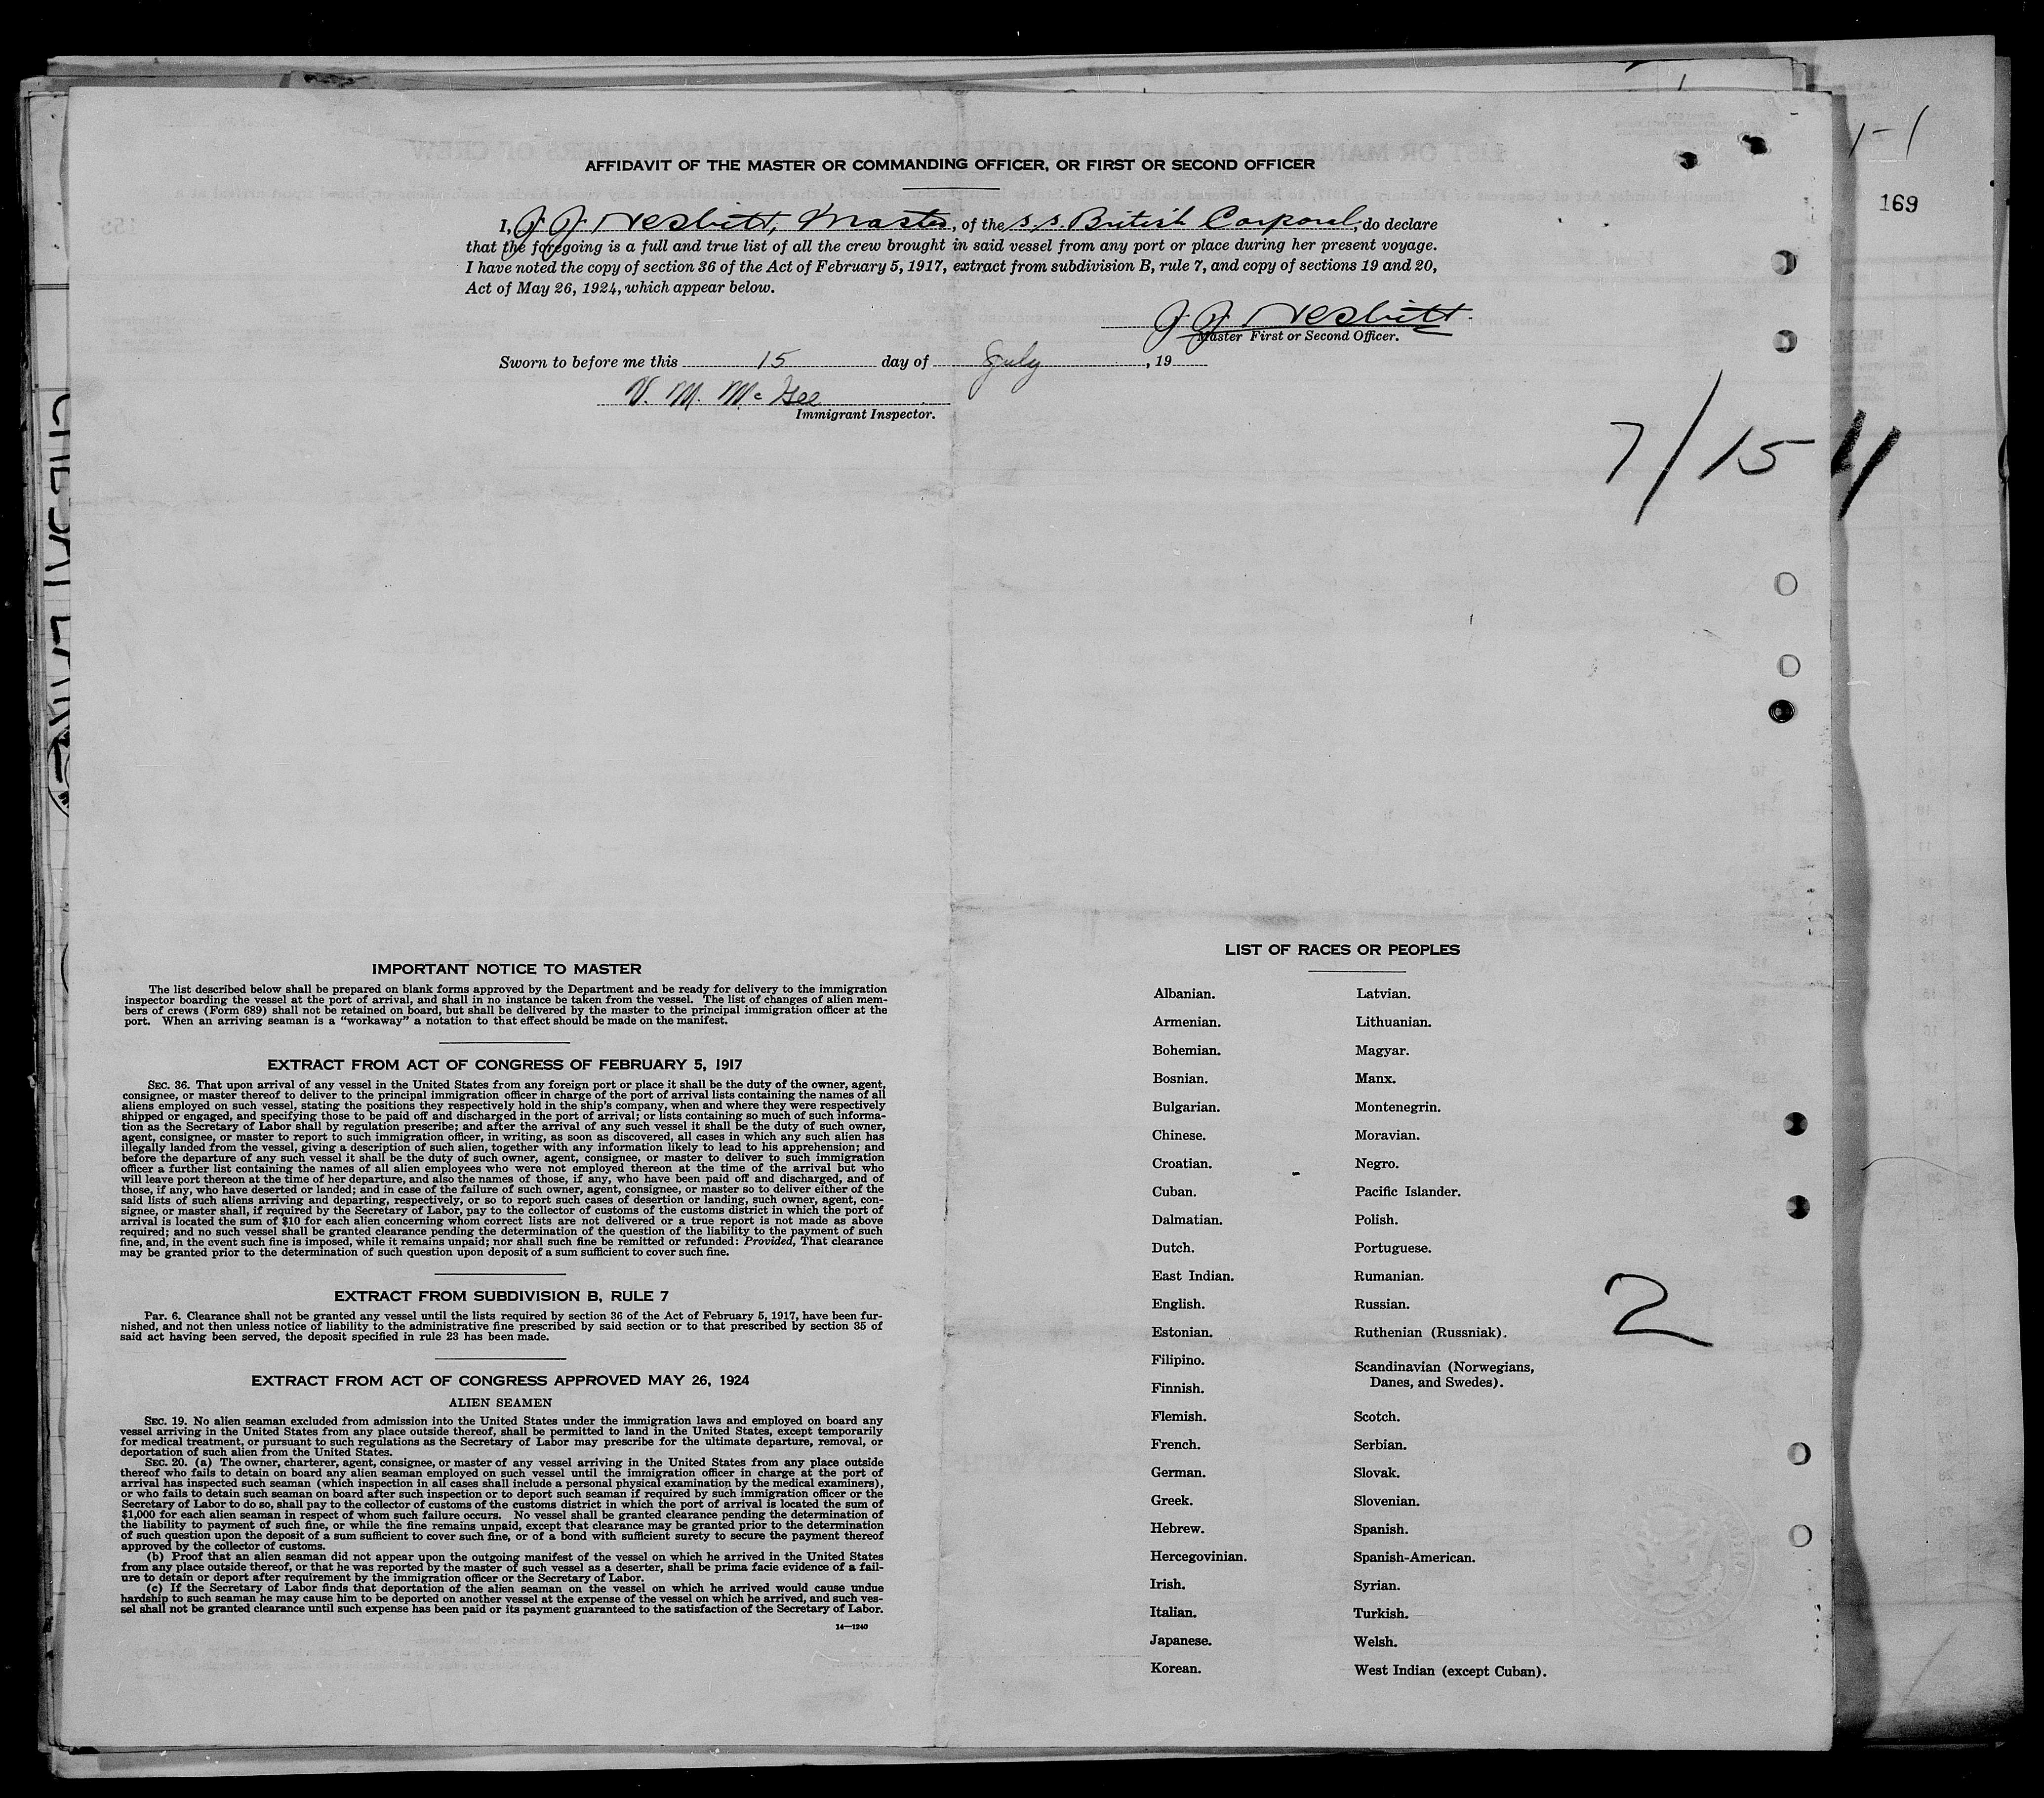 AFFIDAVIT OF THE MASTER OR COMMANDING OFFICER, OR FIRST OR SECOND OFFICER
I, J J Nesbitt, Master, of the s.s. British Corporal, do declare
that the foregoing is a full and true list of all the crew brought in said vessel from any port or place during her present voyage.
I have noted the copy of section 36 of the Act of February 5, 1917, extract from subdivision B, rule 7, and copy of sections 19 and 20,
Act of May 26, 1924, which appear below.
J J Nesbitt
Master First or Second Officer.
Sworn to before me this 15 day of July, 19
V. M. McGee
Immigrant Inspector.
1-1
169
7/15
4
IMPORTANT NOTICE TO MASTER
The list described below shall be prepared on blank forms approved by the Department and be ready for delivery to the immigration
inspector boarding the vessel at the port of arrival, and shall in no instance be taken from the vessel. The list of changes of alien mem-
bers of crews (Form 689) shall not be retained on board, but shall be delivered by the master to the principal immigration officer at the
port. When an arriving seaman is a "workaway" a notation to that effect should be made on the manifest.
EXTRACT FROM ACT OF CONGRESS OF FEBRUARY 5, 1917
SEC. 36. That upon arrival of any vessel in the United States from any foreign port or place it shall be the duty of the owner, agent,
consignee, or master thereof to deliver to the principal immigration officer in charge of the port of arrival lists containing the names of all
aliens employed on such vessel, stating the positions they respectively hold in the ship's company, when and where they were respectively
shipped or engaged, and specifying those to be paid off and discharged in the port of arrival; or lists containing so much of such informa-
tion as the Secretary of Labor shall by regulation prescribe; and after the arrival of any such vessel it shall be the duty of such owner,
agent, consignee, or master to report to such immigration officer, in writing, as soon as discovered, all cases in which any such alien has
illegally landed from the vessel, giving a description of such alien, together with any information likely to lead to his apprehension; and
before the departure of any such vessel it shall be the duty of such owner, agent, consignee, or master to deliver to such immigration
officer a further list containing the names of all alien employees who were not employed thereon at the time of the arrival but who
will leave port thereon at the time of her departure, and also the names of those, if any, who have been paid off and discharged, and of
those, if any, who have deserted or landed; and in case of the failure of such owner, agent, consignee, or master so to deliver either of the
said lists of such aliens arriving and departing, respectively, or so to report such cases of desertion or landing, such owner, agent, con-
signee, or master shall, if required by the Secretary of Labor, pay to the collector of customs of the customs district in which the port of
arrival is located the sum of $10 for each alien concerning whom correct lists are not delivered or a true report is not made as above
required; and no such vessel shall be granted clearance pending the determination of the question of the liability to the payment of such
fine, and, in the event such fine is imposed, while it remains unpaid; nor shall such fine be remitted or refunded: Provided, That clearance
may be granted prior to the determination of such question upon deposit of a sum sufficient to cover such fine.
EXTRACT FROM SUBDIVISION B, RULE 7
Par. 6. Clearance shall not be granted any vessel until the lists required by section 36 of the Act of February 5, 1917, have been fur-
nished, and not then unless notice of liability to the administrative fine prescribed by said section or to that prescribed by section 35 of
said act having been served, the deposit specified in rule 23 has been made.
EXTRACT FROM ACT OF CONGRESS APPROVED MAY 26, 1924
ALIEN SEAMEN
SEC. 19. No alien seaman excluded from admission into the United States under the immigration laws and employed on board any
vessel arriving in the United States from any place outside thereof, shall be permitted to land in the United States, except temporarily
for medical treatment, or pursuant to such regulations as the Secretary of Labor may prescribe for the ultimate departure, removal, or
deportation of such alien from the United States.
SEC. 20. (a) The owner, charterer, agent, consignee, or master of any vessel arriving in the United States from any place outside
thereof who fails to detain on board any alien seaman employed on such vessel until the immigration officer in charge at the port of
arrival has inspected such seaman (which inspection in all cases shall include a personal physical examination by the medical examiners),
or who fails to detain such seaman on board after such inspection or to deport such seaman if required by such immigration officer or the
Secretary of Labor to do so, shall pay to the collector of customs of the customs district in which the port of arrival is located the sum of
$1,000 for each alien seaman in respect of whom such failure occurs. No vessel shall be granted clearance pending the determination of
the liability to payment of such fine, or while the fine remains unpaid, except that clearance may be granted prior to the determination
of such question upon the deposit of a sum sufficient to cover such fine, or of a bond with sufficient surety to secure the payment thereof
approved by the collector of customs.
(b) Proof that an alien seaman did not appear upon the outgoing manifest of the vessel on which he arrived in the United States
from any place outside thereof, or that he was reported by the master of such vessel as a deserter, shall be prima facie evidence of a fail-
ure to detain or deport after requirement by the immigration officer or the Secretary of Labor.
(c) If the Secretary of Labor finds that deportation of the alien seaman on the vessel on which he arrived would cause undue
hardship to such seaman he may cause him to be deported on another vessel at the expense of the vessel on which he arrived, and such ves-
sel shall not be granted clearance until such expense has been paid or its payment guaranteed to the satisfaction of the Secretary of Labor.
14—1240
LIST OF RACES OR PEOPLES
Albanian.
Armenian.
Bohemian.
Bosnian.
Bulgarian.
Chinese.
Croatian.
Cuban.
Dalmatian.
Dutch.
East Indian.
English.
Estonian.
Filipino.
Finnish.
Flemish.
French.
German.
Greek.
Hebrew.
Hercegovinian.
Irish.
Italian.
Japanese.
Korean.
Latvian.
Lithuanian.
Magyar.
Manx.
Montenegrin.
Moravian.
Negro.
Pacific Islander.
Polish.
Portuguese.
Rumanian.
Russian.
Ruthenian (Russniak).
Scandinavian (Norwegians,
Danes, and Swedes).
Scotch.
Serbian.
Slovak.
Slovenian.
Spanish.
Spanish-American.
Syrian.
Turkish.
Welsh.
West Indian (except Cuban).
2